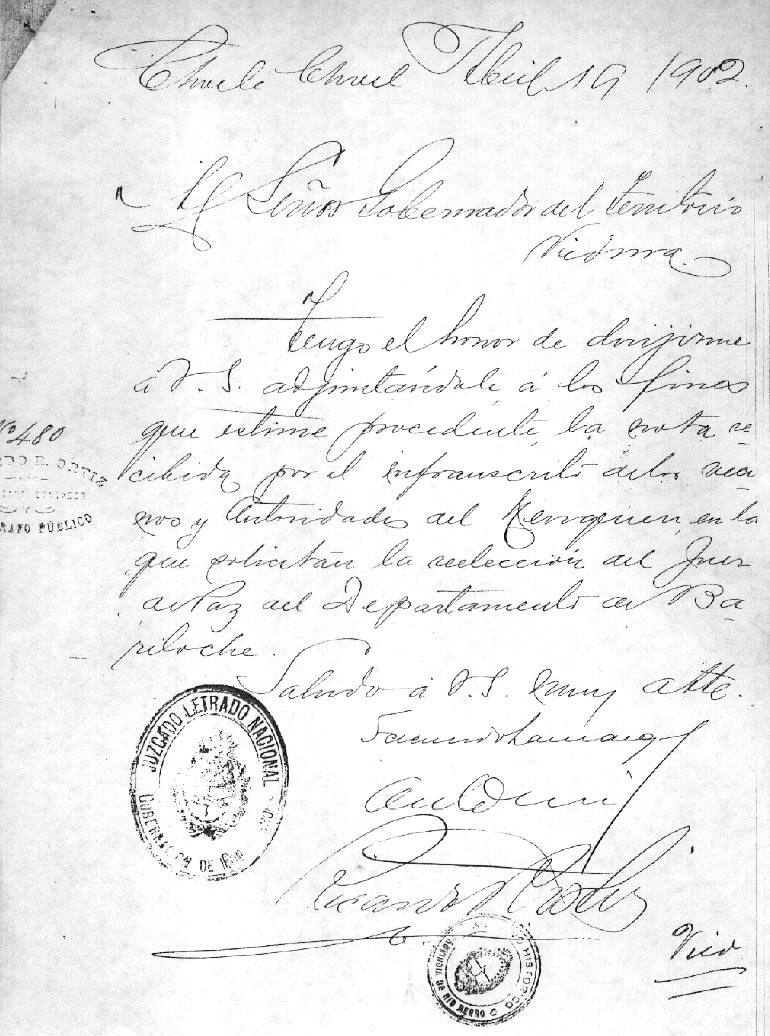 Choele Choel Abril 19 1902.
Al Señor Gobernador del Territorio
Viedma.
Tengo el honor de dirijirme
á V. S. adjuntándole, á los fines
que estime procedente, la nota re-
cibida por el infrascrito de los veci-
nos y Autoridades del Neuquen, en la
que solicitan la reelección del Juez
de Paz del Departamento de Ba-
riloche.
Saludo á V. S. muy atte.
Nº 480
ORTIZ
PÚBLICO
JUZGADO LETRADO NACIONAL
GOBERNACION DE RIO
HISTORICO
DE RIO NEGRO